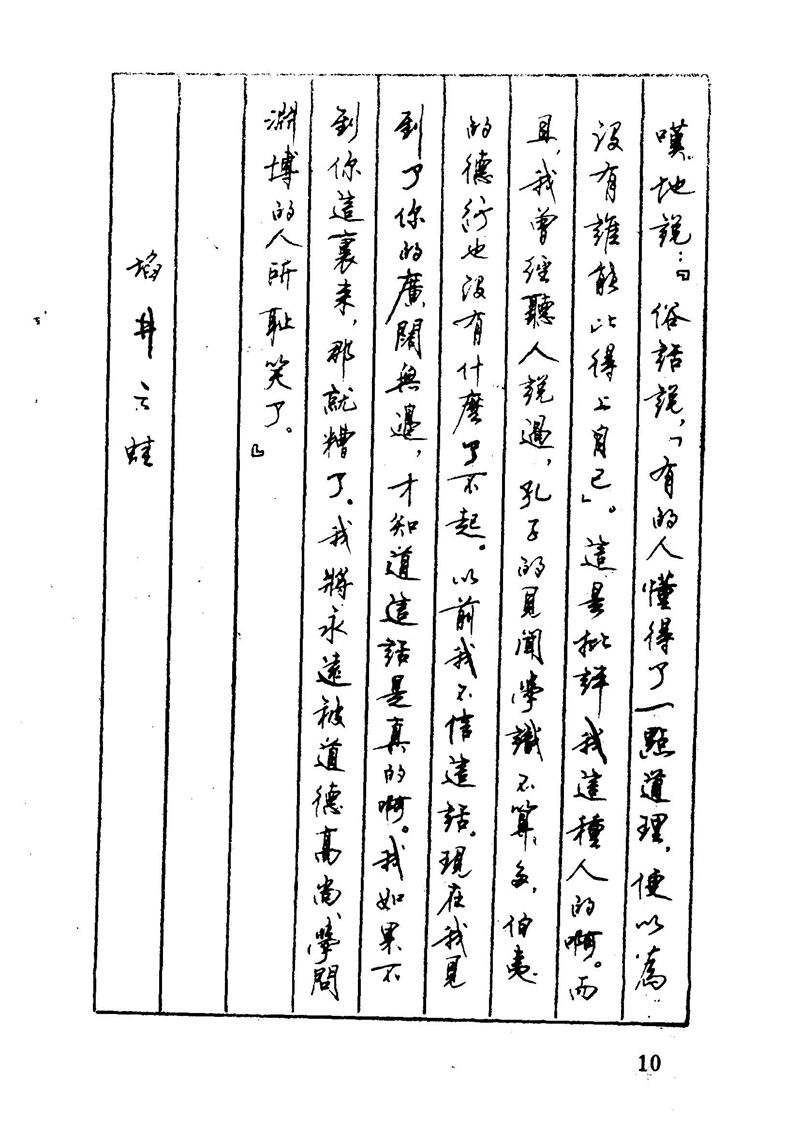 嘆地說：『俗話說，「有的人懂得了一點道理，便以為
沒有誰能比得上自己」。這是批評我這種人的啊。而
且，我曾經聽人說過，孔子的見聞學識不算多，伯夷
的德行也沒有什麼了不起。以前我不信這話。現在我見
到了你的廣闊無邊，才知道這話是真的啊。我如果不
到你這裏来，那就糟了。我將永遠被道德高尚學問
淵博的人所恥笑了。』
埳井之蛙
10